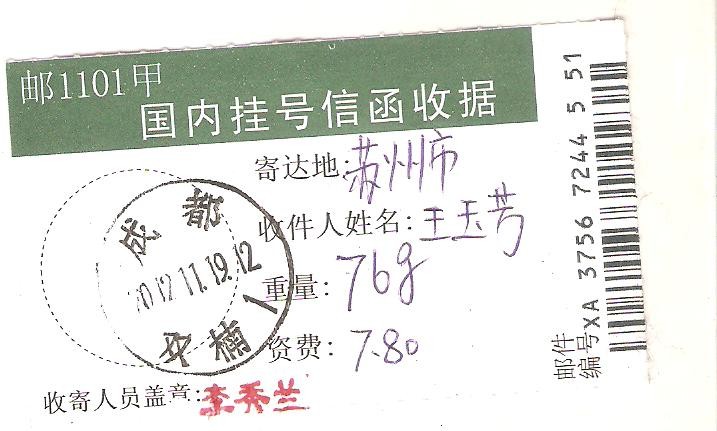 邮1101甲
国内挂号信函收据
寄达地:苏州市
收件人姓名:王玉芳
重量:76g
资费:7.80
收寄人员盖章:李秀兰
成都
2012.11.19.12
楠 1
邮件
编号XA 3756 7244 5 51